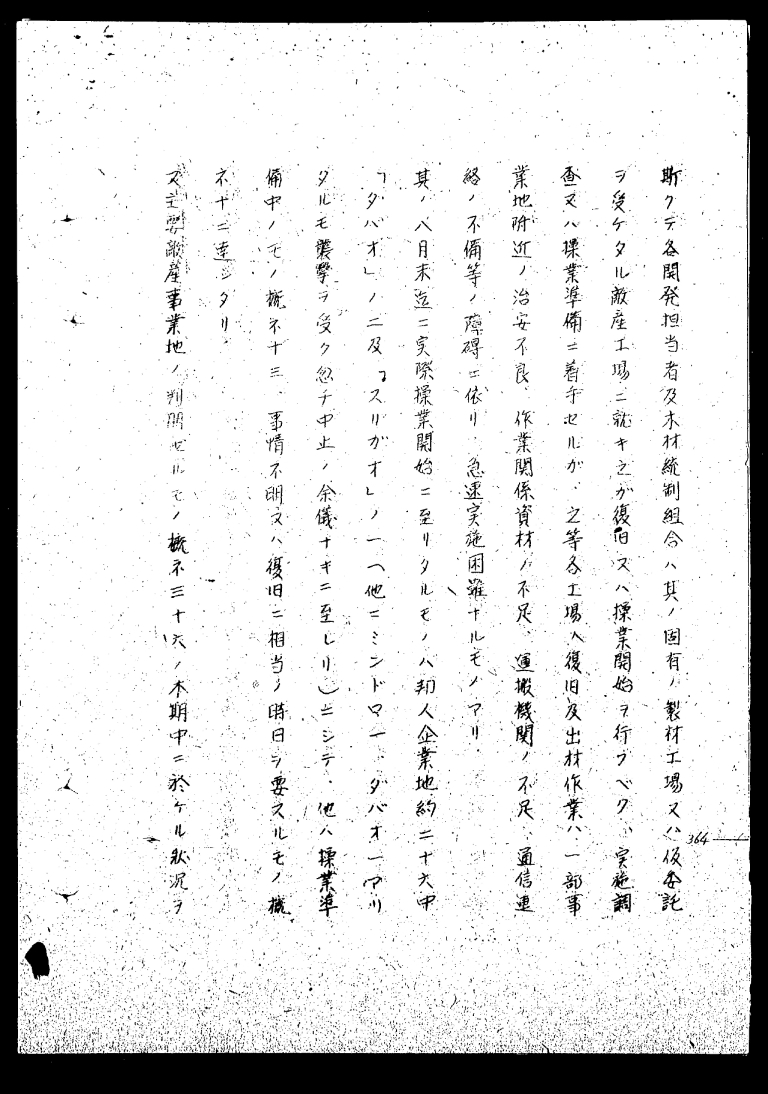 斯クテ各開発担当者及木材統制組合ハ其ノ固有ノ製材工場又ハ仮委託
ヲ受ケタル敵産工場ニ就キ之ガ復旧又ハ操業開始ヲ行フベク、実施調
査又ハ操業準備ニ着手セルガ、之等各工場ノ復旧及出材作業ハ一部事
業地附近ノ治安不良、作業関係資材ノ不足、運搬機関ノ不足、通信連
絡ノ不備等ノ障碍ニ依リ、急速実施困難ナルモノアリ、
其ノ八月末迄ニ実際操業開始ニ至リタルモノハ邦人企業地約二十六中
「ダバオ」ノ二及「スリガオ」ノ一(他ニミンドロ一、ダバオ一アリ
タルモ襲撃ヲ受ク忽チ中止ノ余儀ナキニ至レリ)ニシテ、他ハ操業準
備中ノモノ概ネ十三、事情不明又ハ復旧ニ相当ノ時日ヲ要スルモノ概
ネ十ニ達シタリ、
又主要敵産事業地ノ判明セルモノ概ネ三十六ノ本期中ニ於ケル状況ヲ
364